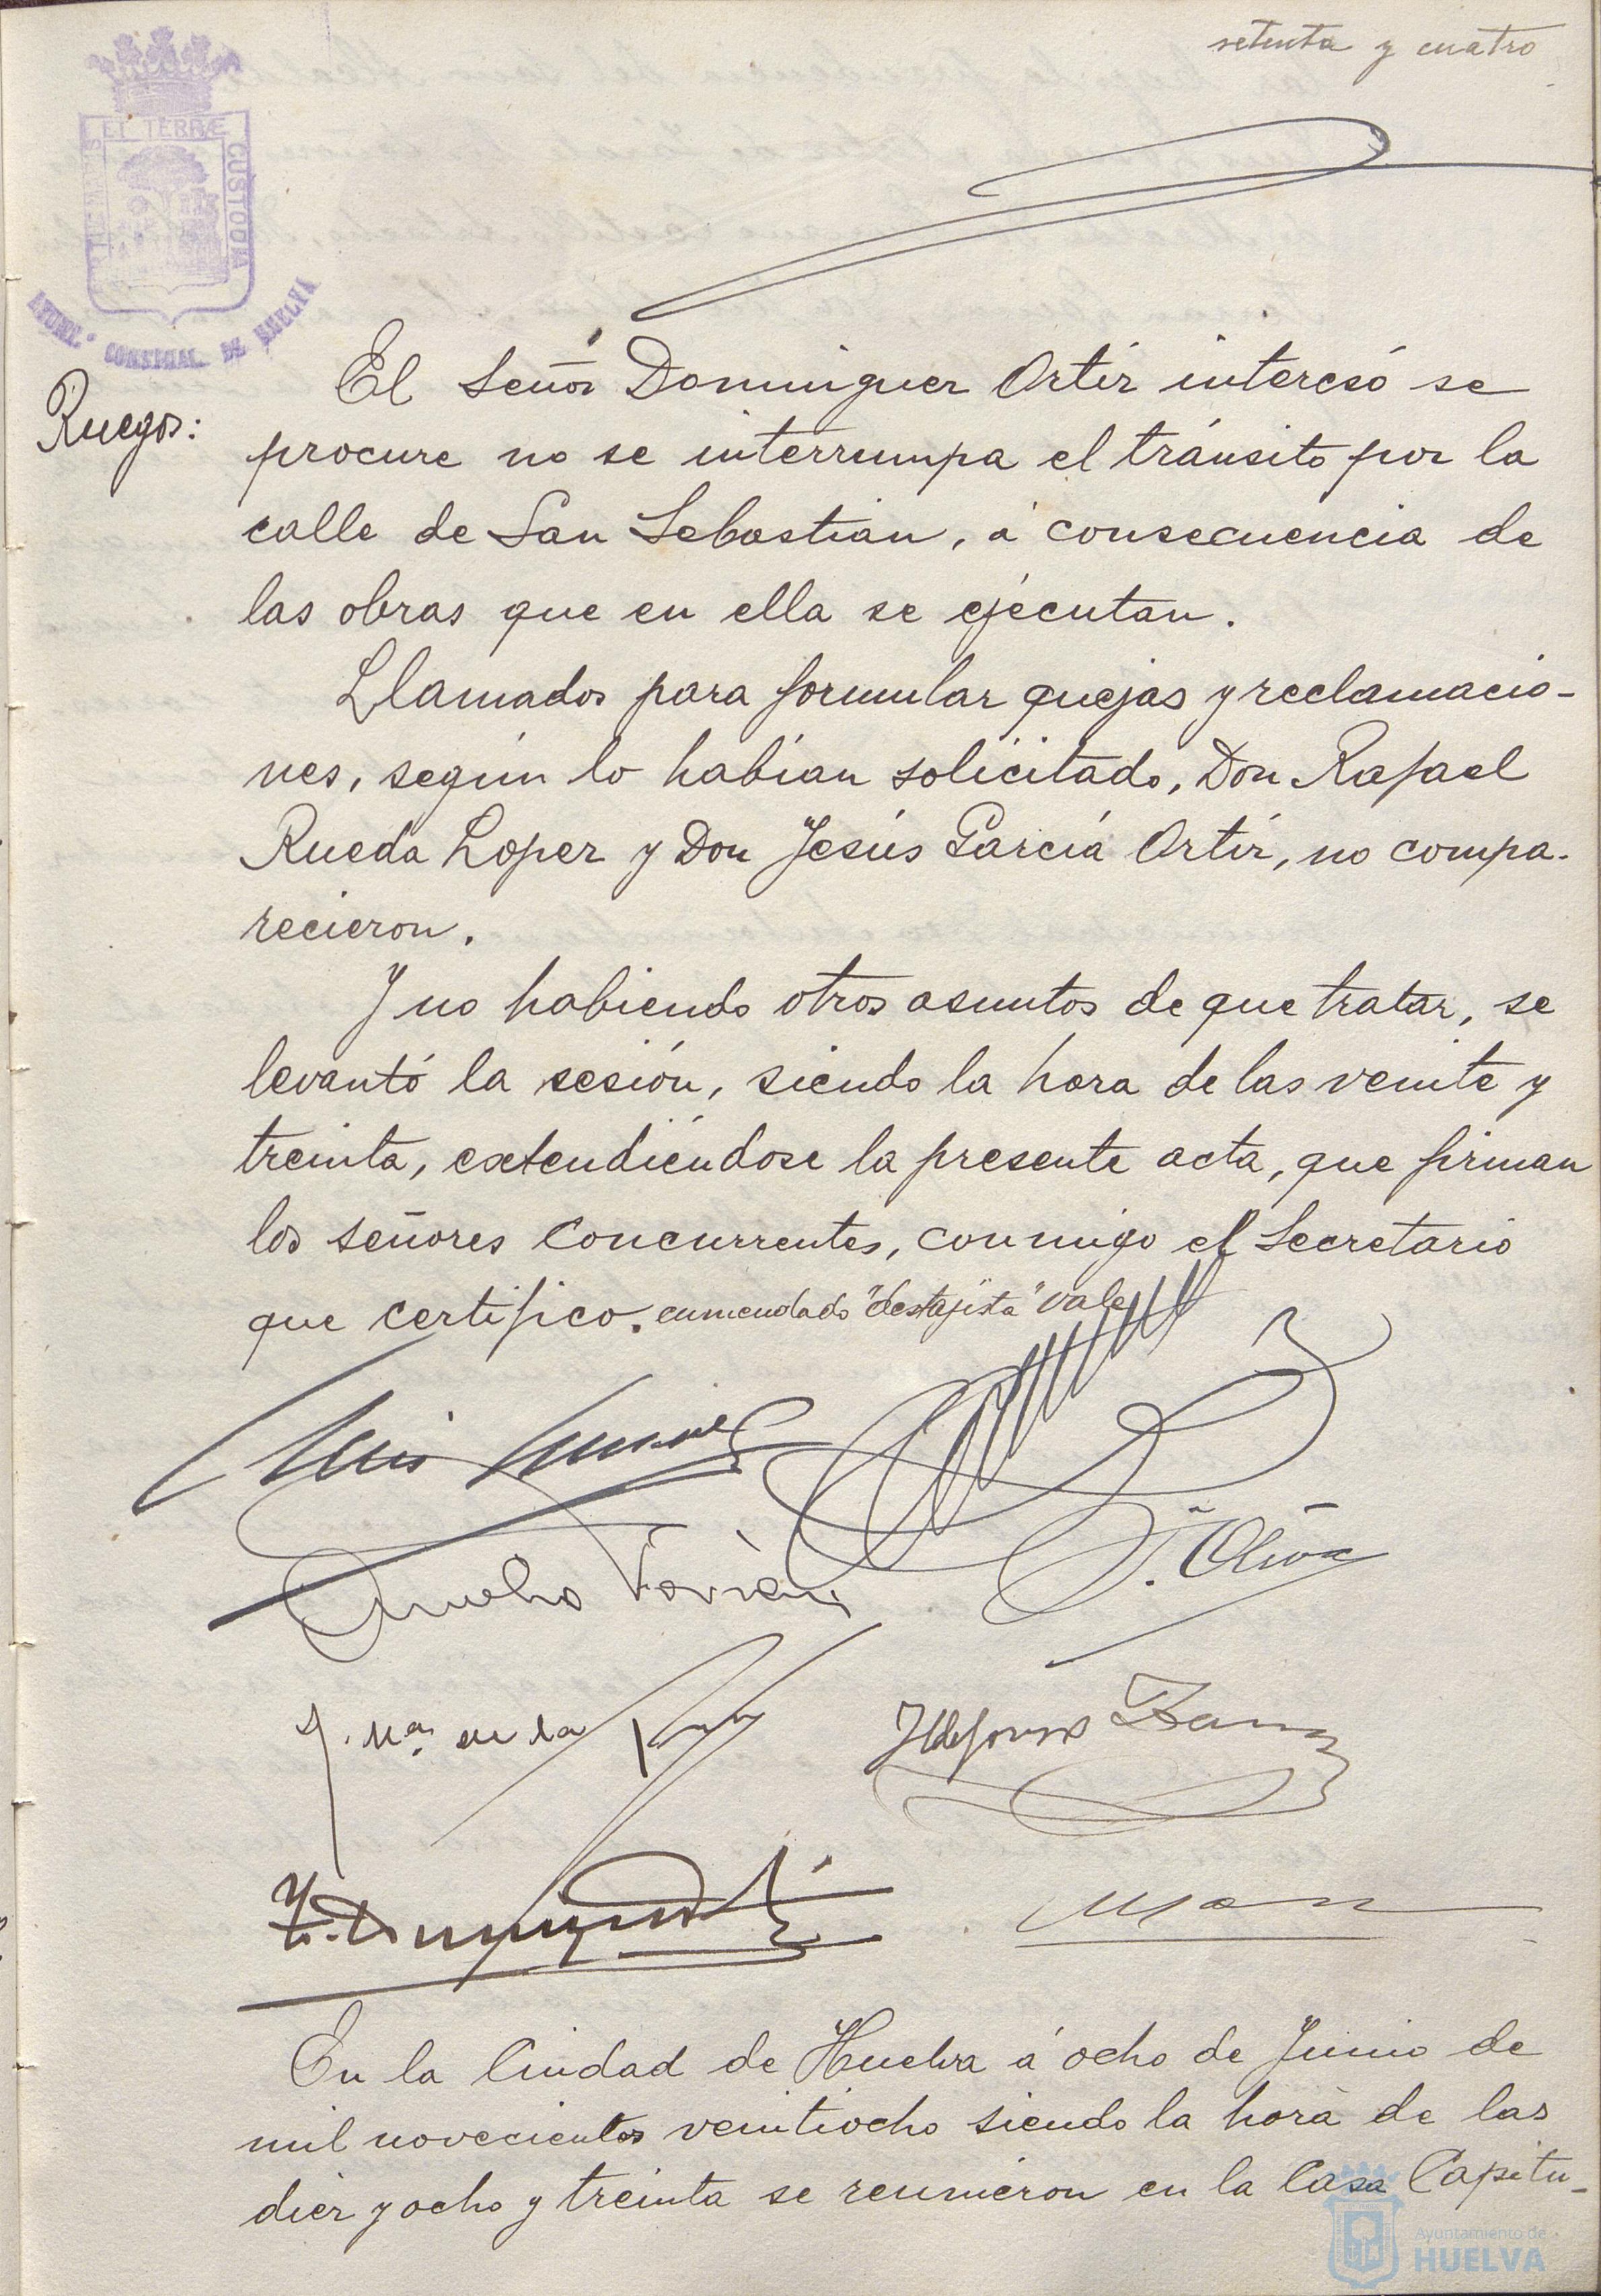 setenta y cuatro
ET TERRÆ CUSTODIA
AYUNT.º CONSTNAL. DE HUELVA
Ruegos:
El Señor Dominguez Ortiz interesó se
procure no se interrumpa el tránsito por la
calle de San Sebastian, á consecuencia de
las obras que en ella se ejecutan.
Llamados para formular quejas y reclamacio-
nes, según lo habían solicitado, Don Rafael
Rueda Lopez y Don Jesús García Ortiz, no compa-
recieron.
Y no habiendo otros asuntos de que tratar, se
levantó la sesión, siendo la hora de las veinte y
treinta, extendiéndose la presente acta, que firman
los señores concurrentes, conmigo el Secretario
que certifico. enmendado "destajista" vale
J. Oliva
J. Mª. de la
Ildefonso
En la Ciudad de Huelva á ocho de Junio de
mil novecientos veintiocho siendo la hora de las
diez y ocho y treinta se reunieron en la Casa Capitu-
Ayuntamiento de
HUELVA